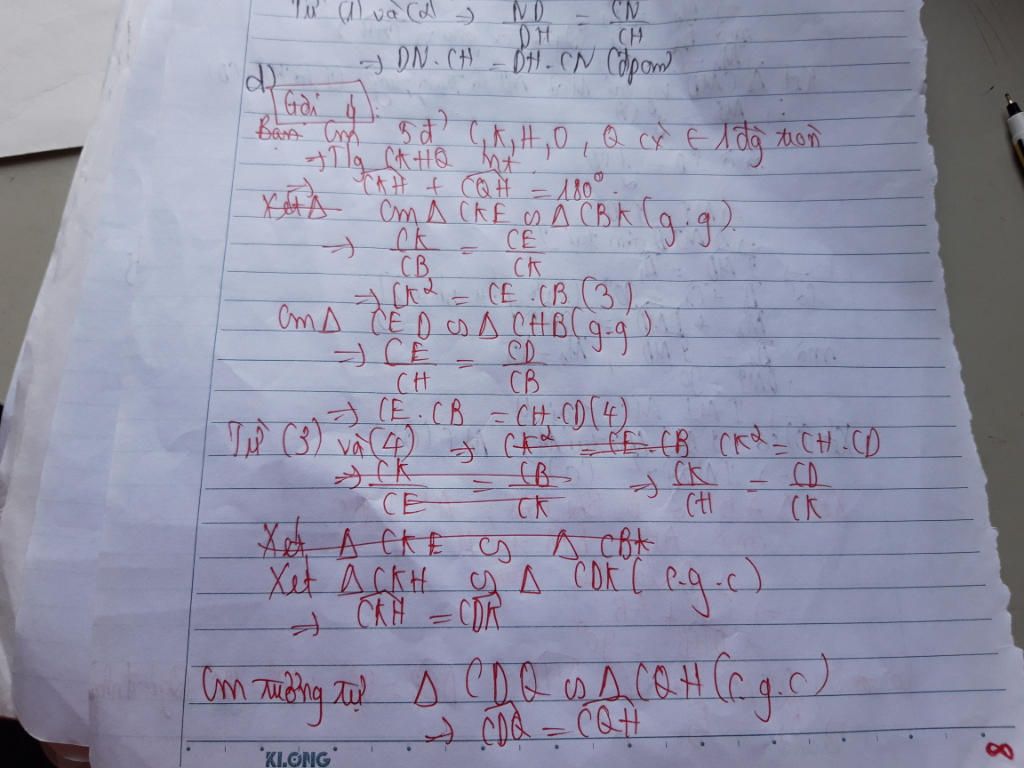 Từ (1) và (2) ⇒ ND/DH = CN/CH
⇒ DN.CH = DH.CN (đpcm)
d)
Gợi ý:
Bạn Cm 5 đ' C, K, H, O, Q cx ∈ 1 đg tròn
⇒ Tlg CKHQ nt
⇒ CKH + CQH = 180°.
Xét Δ Cm Δ CKE ∽ Δ CBK (g.g).
⇒ CK/CB = CE/CK
⇒ CK² = CE.CB (3)
Cm Δ CED ∽ Δ CHB (g-g)
⇒ CE/CH = CD/CB
⇒ CE.CB = CH.CD (4)
Từ (3) và (4) ⇒ CK² = CE.CB CK² = CH.CD
⇒ CK/CE = CB/CK ⇒ CK/CH = CD/CK
Xét Δ CKE ∽ Δ CBK
Xét Δ CKH ∽ Δ CDK (c-g-c)
⇒ CKH = CDK
Cm tương tự Δ CDQ ∽ Δ CQH (c.g.c)
⇒ CDQ = CQH
KLONG
8